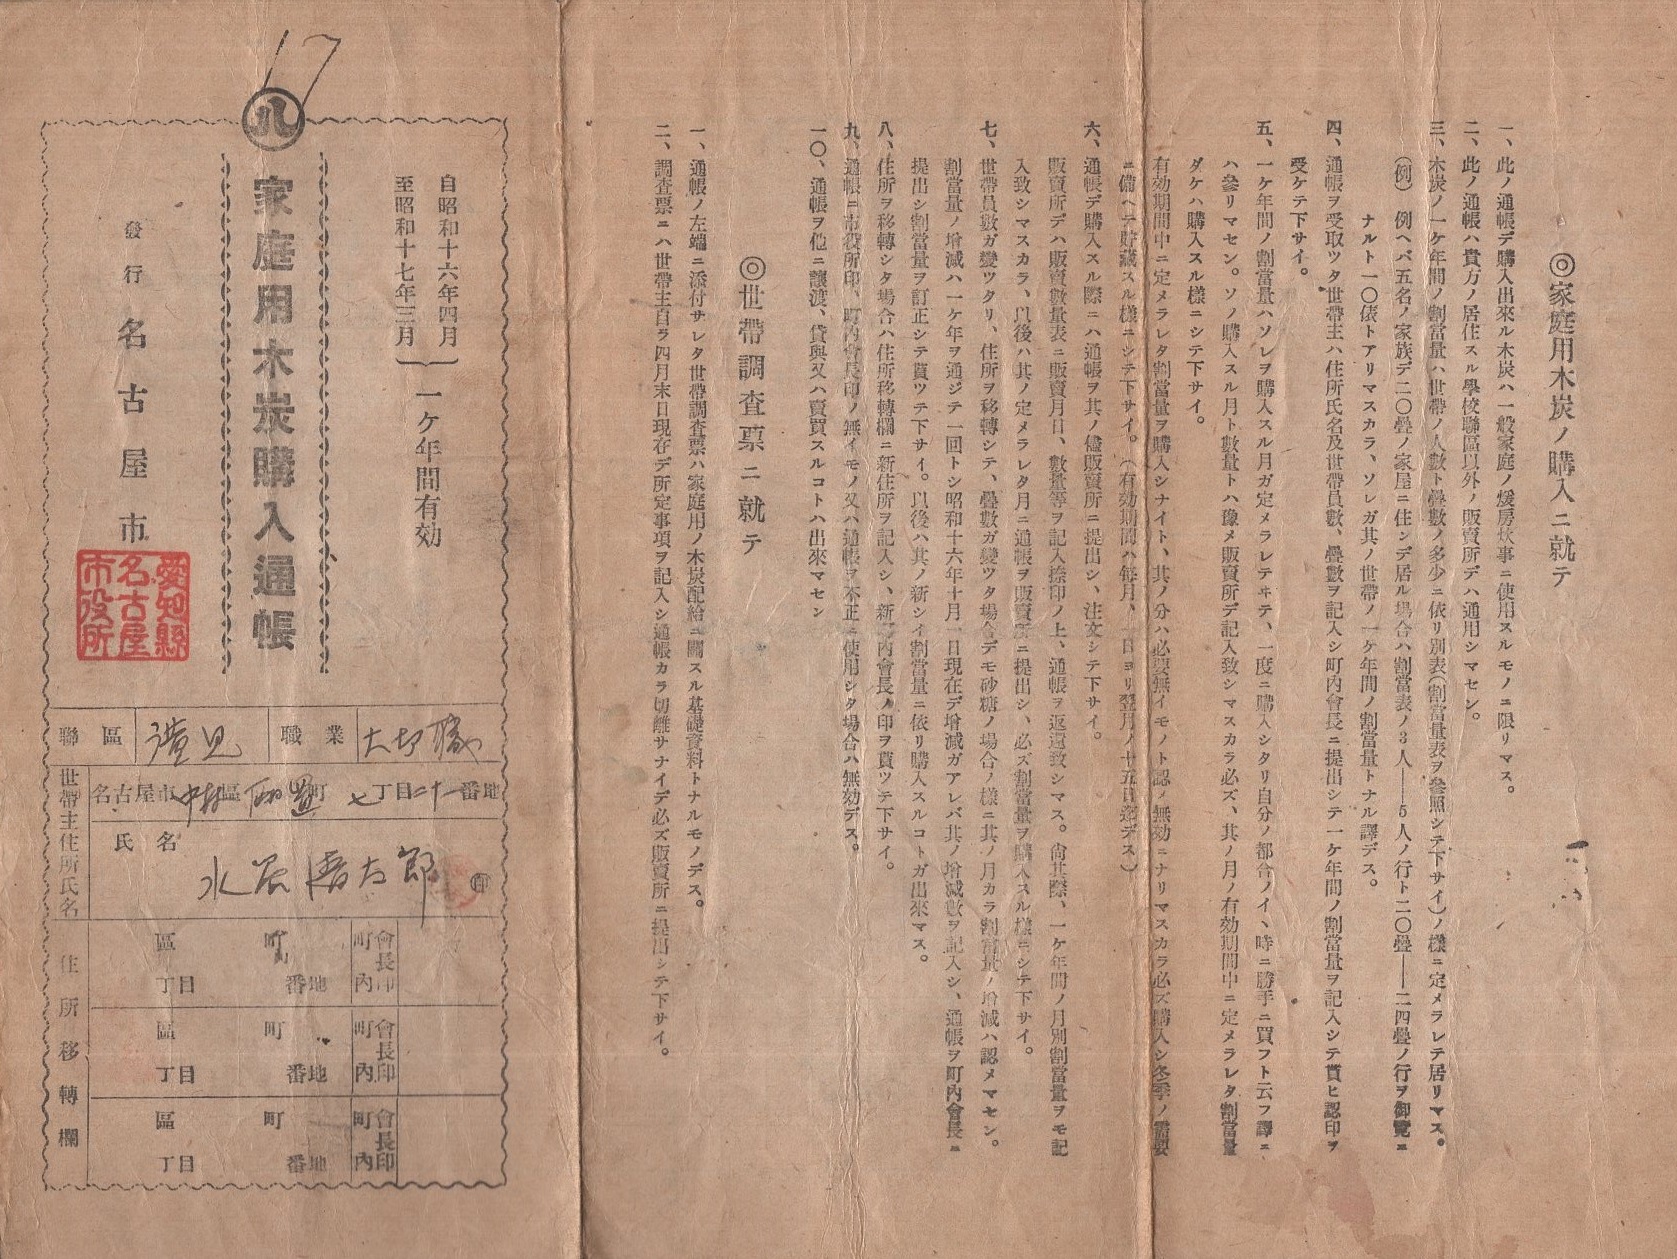 ◎家庭用木炭ノ購入ニ就テ
一、此ノ通帳デ購入出來ル木炭ハ一般家庭ノ煖房炊事ニ使用スルモノニ限リマス。
二、此ノ通帳ハ貴方ノ居住スル學校聯區以外ノ販賣所デハ通用シマセン。
三、木炭ノ一ケ年間ノ割當量ハ世帶ノ人數ト疊數ノ多少ニ依リ別表(割當量表ヲ參照シテ下サイ)ノ樣ニ定メラレテ居リマス。
(例) 例ヘバ五名ノ家族デ二〇疊ノ家屋ニ住ンデ居ル場合ハ割當表ノ3人——5人ノ行ト二〇疊——二四疊ノ行ヲ御覽ニ
ナルト一〇俵トアリマスカラ、ソレガ其ノ世帶ノ一ケ年間ノ割當量トナル譯デス。
四、通帳ヲ受取ツタ世帶主ハ住所氏名及世帶員數、疊數ヲ記入シ町內會長ニ提出シテ一ケ年間ノ割當量ヲ記入シテ貰ヒ認印ヲ
受ケテ下サイ。
五、一ケ年間ノ割當量ハソレヲ購入スル月ガ定メラレテヰテ、一度ニ購入シタリ自分ノ都合ノイヽ時ニ勝手ニ買フト云フ譯ニ
ハ參リマセン。ソノ購入スル月ト數量トハ豫メ販賣所デ記入致シマスカラ必ズ、其ノ月ノ有効期間中ニ定メラレタ割當量
ダケハ購入スル樣ニシテ下サイ。
有効期間中ニ定メラレタ割當量ヲ購入シナイト、其ノ分ハ必要無イモノト認メ無効ニナリマスカラ必ズ購入シ冬季ノ需要
ニ備ヘテ貯藏スル樣ニシテ下サイ。(有効期間ハ每月、一日ヨリ翌月ノ十五日迄デス)
六、通帳デ購入スル際ニハ通帳ヲ其ノ儘販賣所ニ提出シ、注文シテ下サイ。
販賣所デハ販賣數量表ニ販賣月日、數量等ヲ記入捺印ノ上、通帳ヲ返還致シマス。尙其際、一ケ年間ノ月別割當量ヲモ記
入致シマスカラ、以後ハ其ノ定メラレタ月ニ通帳ヲ販賣所ニ提出シ、必ズ割當量ヲ購入スル樣ニシテ下サイ。
七、世帶員數ガ變ツタリ、住所ヲ移轉シテ、疊數ガ變ツタ場合デモ砂糖ノ場合ノ樣ニ其ノ月カラ割當量ノ增減ハ認メマセン。
割當量ノ增減ハ一ケ年ヲ通ジテ一回トシ昭和十六年十月一日現在デ增減ガアレバ其ノ增減數ヲ記入シ、通帳ヲ町內會長ニ
提出シ割當量ヲ訂正シテ貰ツテ下サイ。以後ハ其ノ新シイ割當量ニ依リ購入スルコトガ出來マス。
八、住所ヲ移轉シタ場合ハ住所移轉欄ニ新住所ヲ記入シ、新町內會長ノ印ヲ貰ツテ下サイ。
九、通帳ニ市役所印、町內會長印ノ無イモノ又ハ通帳ヲ不正ニ使用シタ場合ハ無効デス。
一〇、通帳ヲ他ニ讓渡、貸與又ハ賣買スルコトハ出來マセン
◎世帶調査票ニ就テ
一、通帳ノ左端ニ添付サレタ世帶調査票ハ家庭用ノ木炭配給ニ關スル基礎資料トナルモノデス。
二、調査票ニハ世帶主自ラ四月末日現在デ所定事項ヲ記入シ通帳カラ切離サナイデ必ズ販賣所ニ提出シテ下サイ。
17
八
自昭和十六年四月
至昭和十七年三月
一ケ年間有効
家庭用木炭購入通帳
發行 名古屋市
愛知縣
名古屋
市役所
聯區
職業
世帶主住所氏名
名古屋市中村區 町七丁目二十一番地
氏名
水谷 太郎 ㊞
住所移轉欄
區 町
丁目 番地
町內會長印
區 町
丁目 番地
町內會長印
區 町
丁目 番地
町內會長印